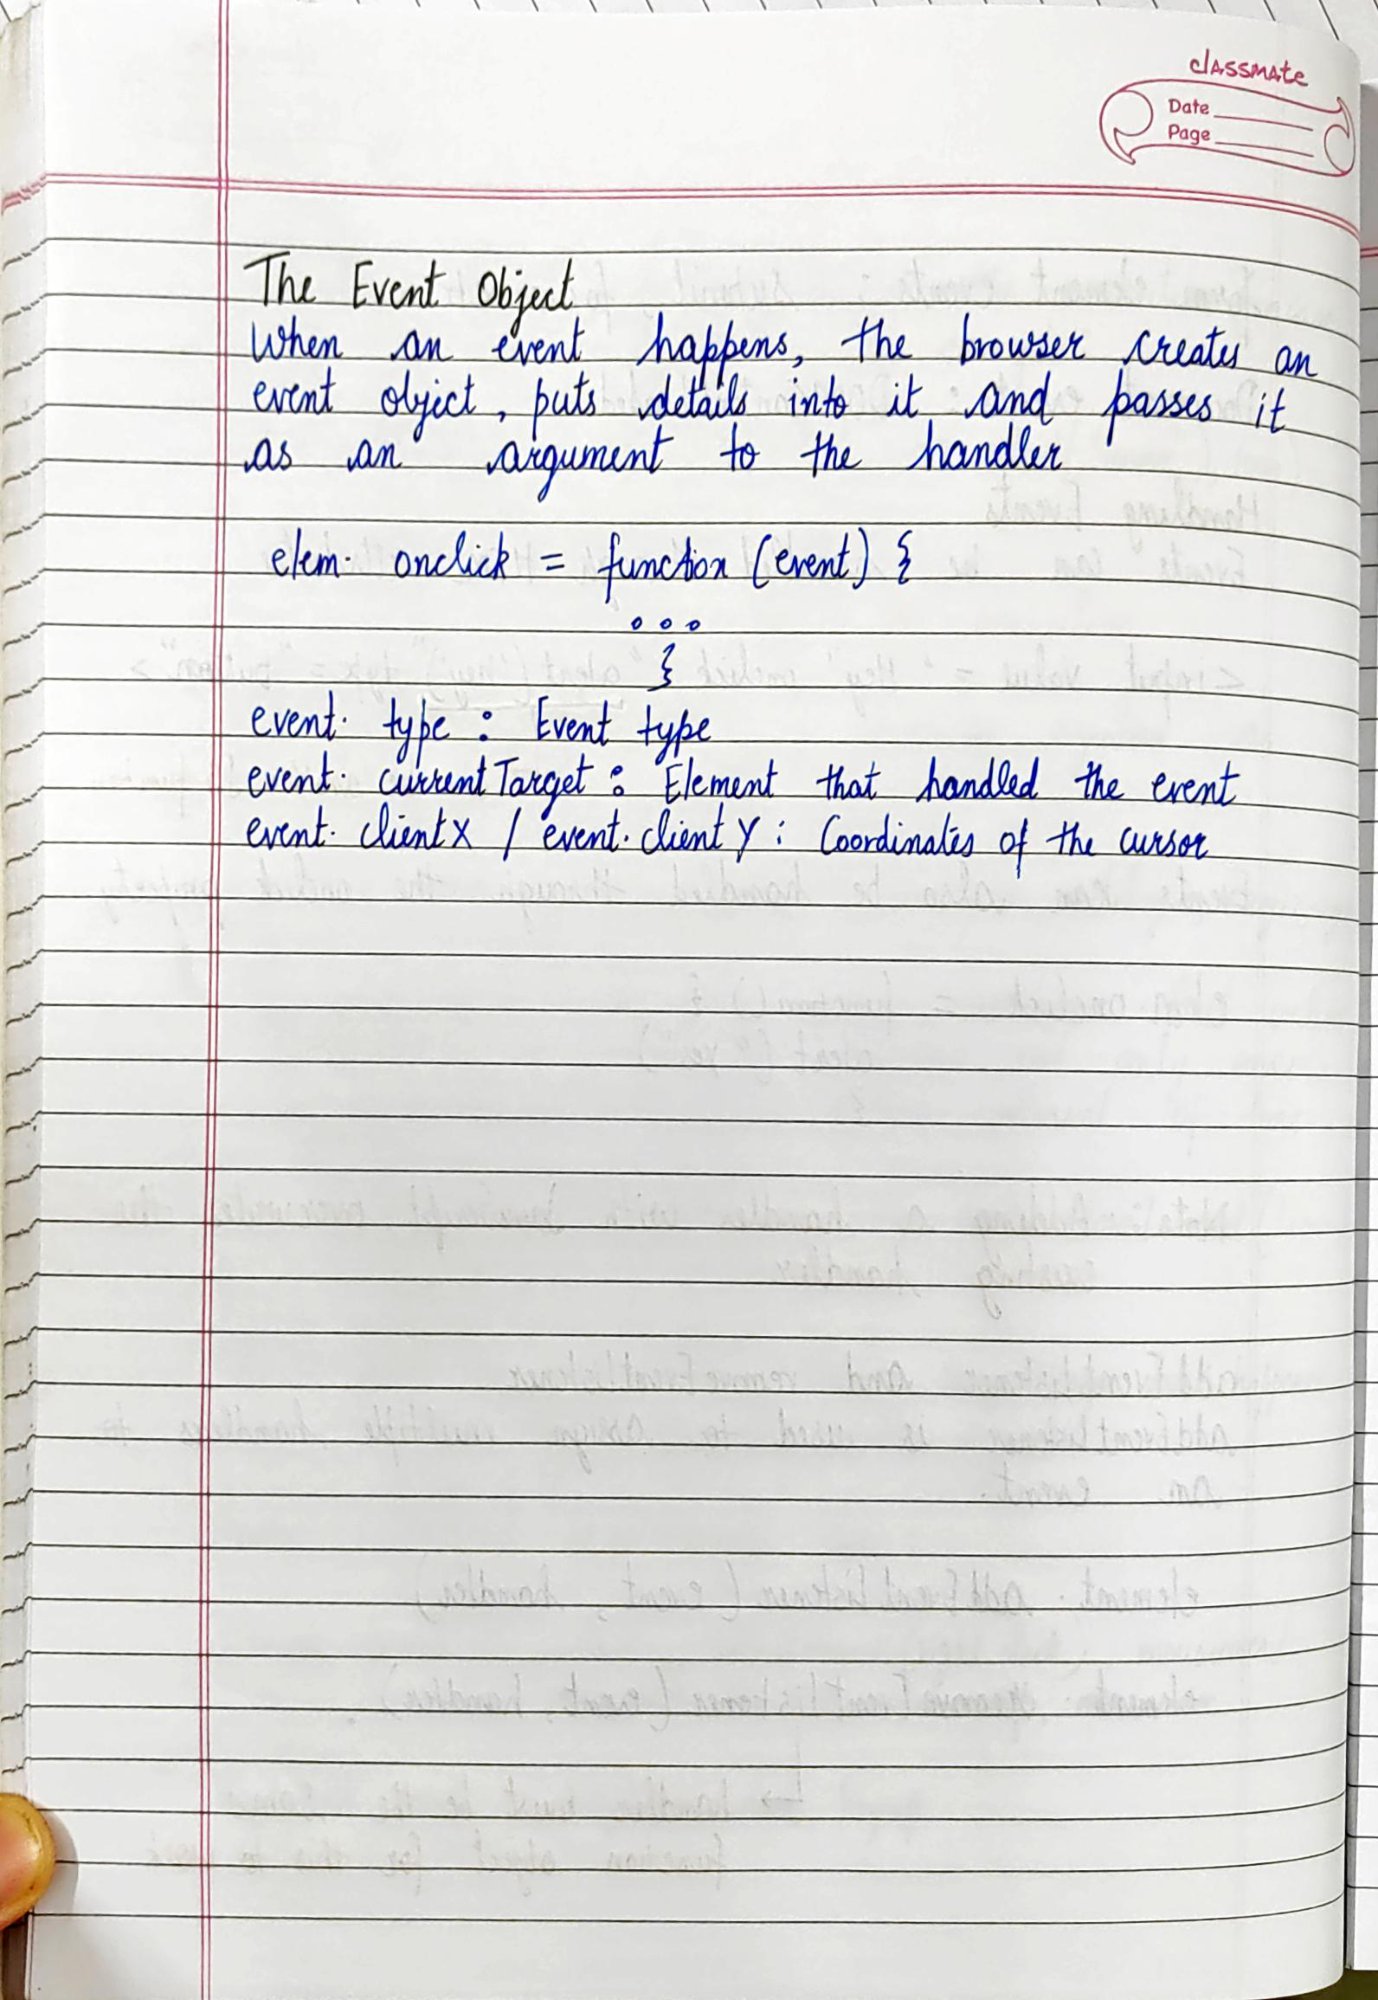 classmate
Date
Page
The Event Object
When an event happens, the browser creates an
event object, puts details into it and passes it
as an argument to the handler
elem. onclick = function (event) {
...
}
event. type : Event type
event. currentTarget : Element that handled the event
event. clientX / event. clientY : Coordinates of the cursor